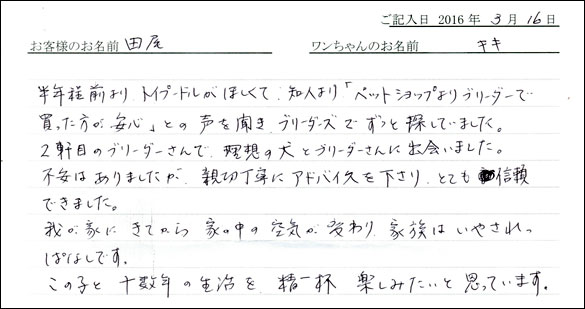 ご記入日 2016 年 3 月 16 日
お客様のお名前 田尾 ワンちゃんのお名前 キキ
半年程前より、トイプードルがほしくて、知人より「ペットショップよりブリーダーで
買った方が安心」との声を聞き、ブリーダーズでずっと探していました。
2軒目のブリーダーさんで、理想の犬とブリーダーさんに出会いました。
不安はありましたが、親切丁寧にアドバイスを下さり、とても信頼
できました。
我が家にきてから家の中の空気が変わり、家族はいやされっ
ぱなしです。
この子と十数年の生活を精一杯楽しみたいと思っています。